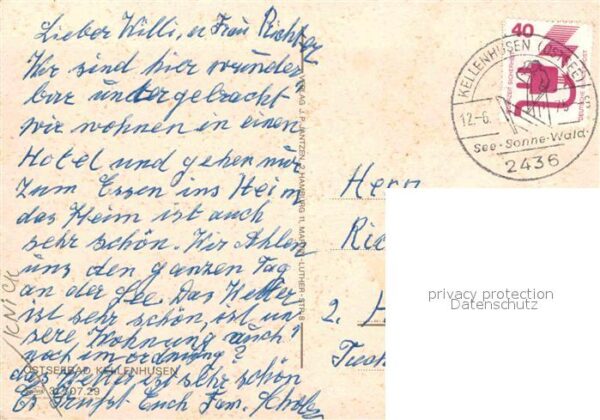 Lieber Willi, u Frau Richter
Wir sind hier wunder
bar untergebracht
wir wohnen in einen
Hotel und gehen nur
zum Essen ins Heim
das Heim ist auch
sehr schön. Wir Ahlen
uns den ganzen Tag
an der See. Das Wetter
ist sehr schön, ist un
sere Wohnung auch
noch im ordnung?
das Wetter ist sehr schön
Es Grüßt Euch Fam.
KNICK
OSTSEEBAD KELLENHUSEN
07.29
VERLAG J. P. JANTZEN, 2 HAMBURG 11, MARTIN-LUTHER-STR. 8
40
DEUTSCHE BUNDESPOST
KELLENHUSEN (OSTSEE)
12.-6.
See-Sonne-Wald
2436
Herr
Ric
2. H
privacy protection
Datenschutz